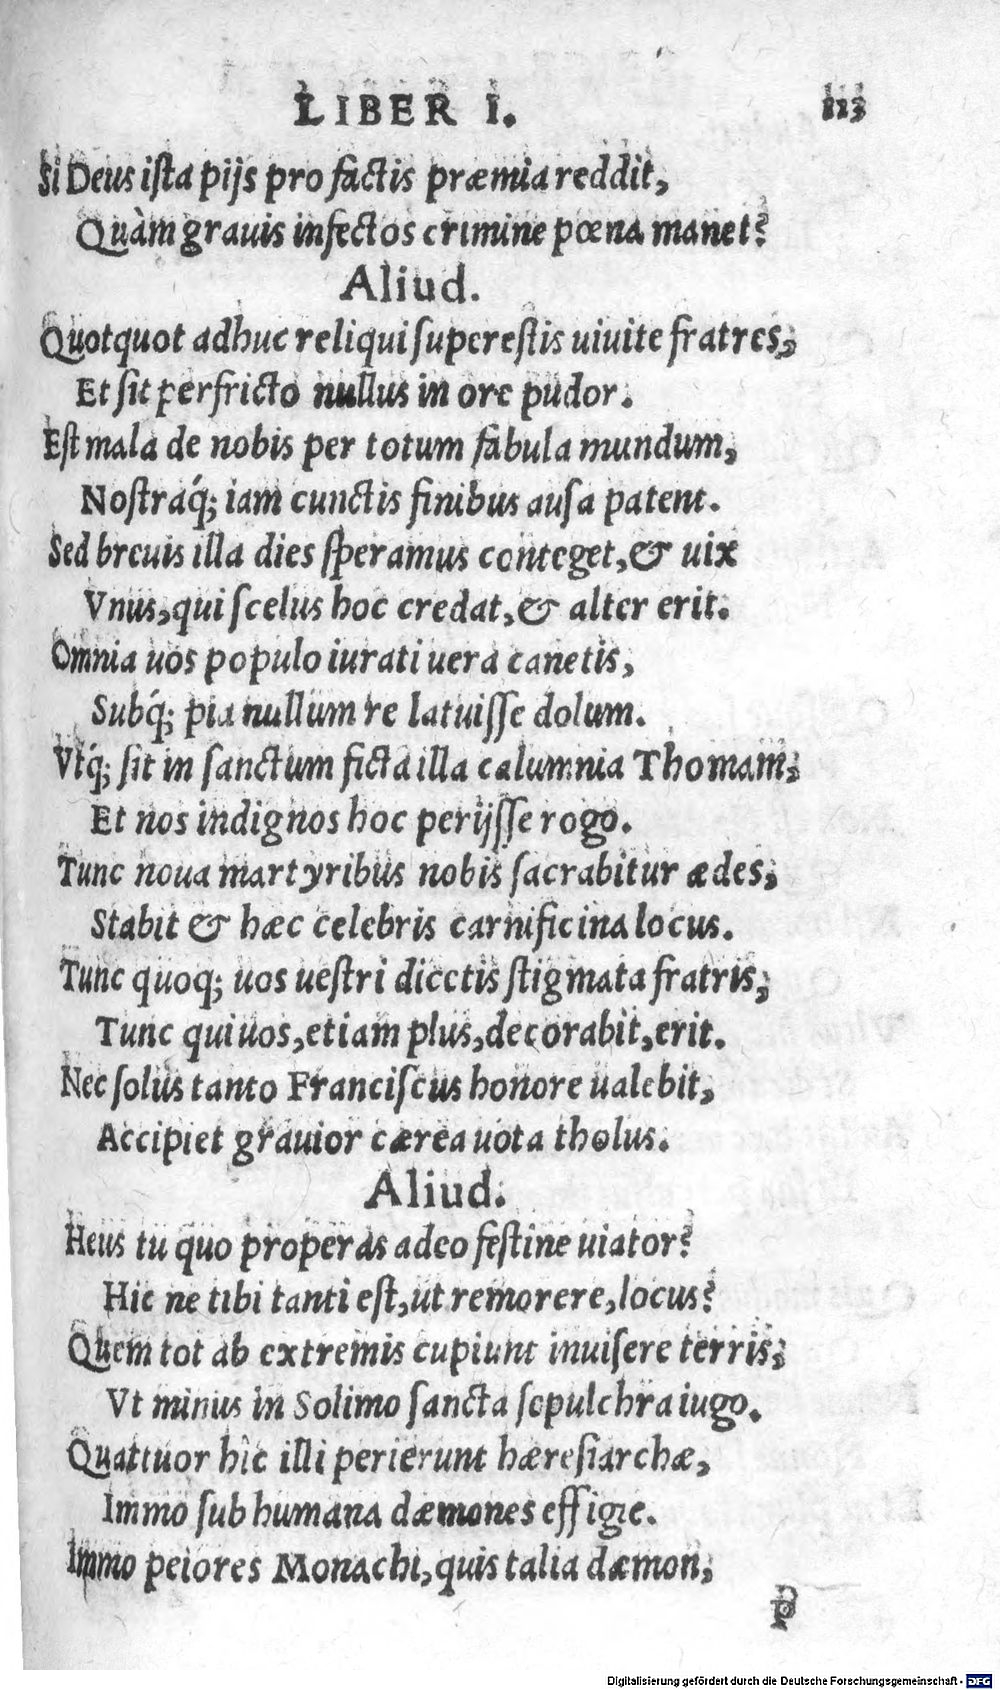 LIBER I. 113
Si Deus iſta pijs pro factis præmia reddit,
Quàm grauis infectos crimine pœna manet?
Aliud.
Quotquot adhuc reliqui ſupereſtis uiuite fratres,
Et ſit perfricto nullus in ore pudor.
Eſt mala de nobis per totum fabula mundum,
Noſtraq́; iam cunctis finibus auſa patent.
Sed breuis illa dies ſperamus conteget, & uix
Vnus, qui ſcelus hoc credat, & alter erit.
Omnia uos populo iurati uera canetis,
Subq́; pia nullum re latuiſſe dolum.
Vtq́; ſit in ſanctum ficta illa calumnia Thomam,
Et nos indignos hoc perijſſe rogo.
Tunc noua martyribus nobis ſacrabitur ædes,
Stabit & hæc celebris carnificina locus.
Tunc quoq; uos ueſtri dicetis ſtigmata fratris,
Tunc qui uos, etiam plus, decorabit, erit.
Nec ſolus tanto Franciſcus honore ualebit,
Accipiet grauior cærea uota tholus.
Aliud.
Heus tu quo properas adeo feſtine uiator?
Hic ne tibi tanti eſt, ut remorere, locus?
Quem tot ab extremis cupiunt inuiſere terris,
Vt minus in Solimo ſancta ſepulchra iugo.
Quattuor hîc illi perierunt hæreſiarchæ,
Immo ſub humana dæmones effigie.
Immo peiores Monachi, quis talia dæmon,
P
Digitalisierung gefördert durch die Deutsche Forschungsgemeinschaft - DFG